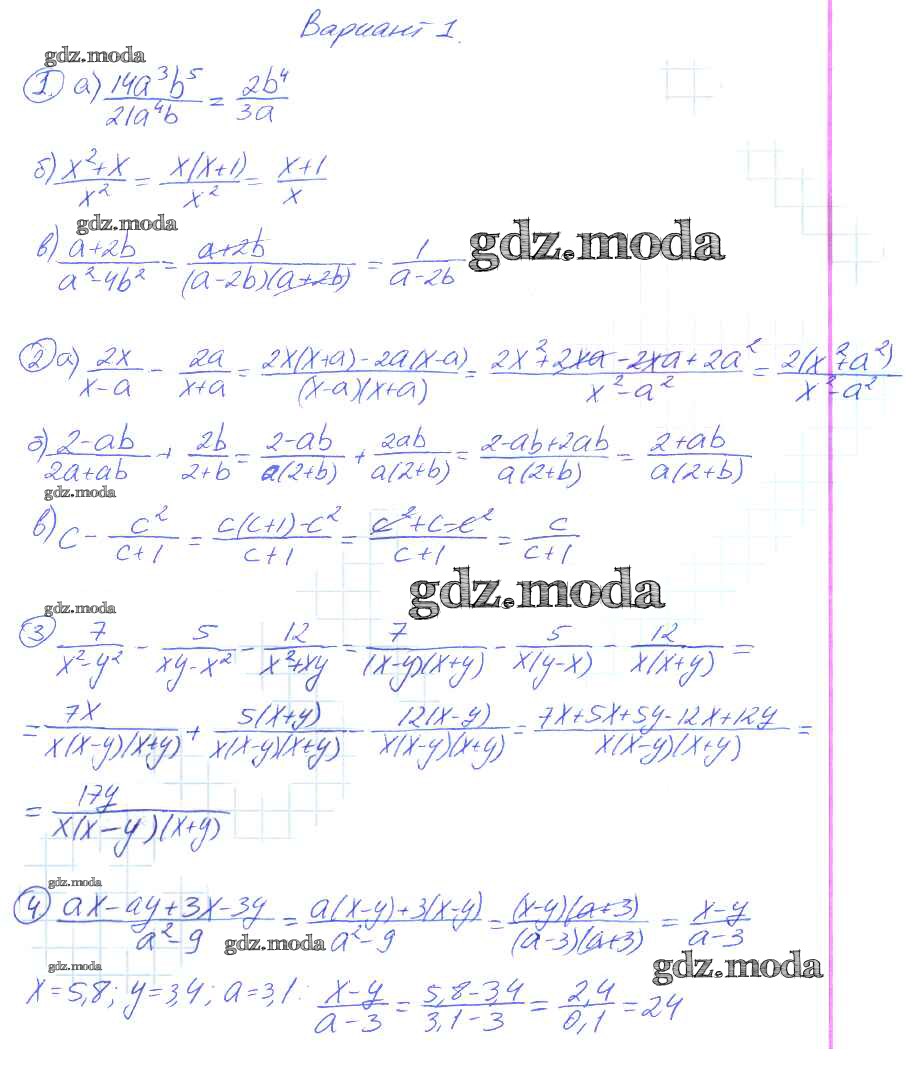 Вариант 1.
gdz.moda
1. а) 14a³b⁵/21a⁴b = 2b⁴/3a
б) x²+x/x² = x(x+1)/x² = x+1/x
gdz.moda
в) a+2b/a²-4b² = a+2b/(a-2b)(a+2b) = 1/a-2b
gdz.moda
2 а) 2x/x-a - 2a/x+a = 2x(x+a)-2a(x-a)/(x-a)(x+a) = 2x²+2xa-2xa+2a²/x²-a² = 2(x²+a²)/x²-a²
б) 2-ab/2a+ab + 2b/2+b = 2-ab/a(2+b) + 2ab/a(2+b) = 2-ab+2ab/a(2+b) = 2+ab/a(2+b)
gdz.moda
в) c - c²/c+1 = c(c+1)-c²/c+1 = c²+c-c²/c+1 = c/c+1
gdz.moda
gdz.moda
3 7/x²-y² - 5/xy-x² - 12/x²+xy = 7/(x-y)(x+y) - 5/x(y-x) - 12/x(x+y) =
= 7x/x(x-y)(x+y) + 5(x+y)/x(x-y)(x+y) - 12(x-y)/x(x-y)(x+y) = 7x+5x+5y-12x+12y/x(x-y)(x+y) =
= 17y/x(x-y)(x+y)
gdz.moda
4 ax-ay+3x-3y/a²-9 = a(x-y)+3(x-y)/a²-9 = (x-y)(a+3)/(a-3)(a+3) = x-y/a-3
gdz.moda
gdz.moda
gdz.moda
x=5,8; y=3,4; a=3,1: x-y/a-3 = 5,8-3,4/3,1-3 = 2,4/0,1 = 24